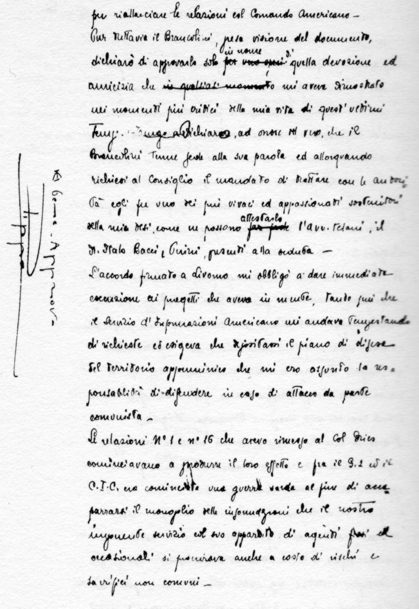 per riallacciare le relazioni col Comando Americano -
Pur tuttavia il Brancolini, presa visione del documento,
dichiarò di approvarlo solo per uno spi in nome di quella devozione ed
amicizia che in qualsiasi momento mi aveva dimostrato
nei momenti più critici della mia vita di questi ultimi
tempi. dichiaro, ad onore del vero, che il
Brancolini tenne fede alla sua parola ed allorquando
richiesi al Consiglio il mandato di trattare con le autori
tà egli fu uno dei più vivaci ed appassionati sostenitori
della mia tesi, come ne possono far fede attestarlo l'avv. Telani, il
N. Italo Bacci e Puini, presenti alla seduta -
L'accordo firmato a Livorno mi obbligò a dare immediata
esecuzione ai progetti che avevo in mente, tanto più che
il Servizio d'Informazioni Americano mi andava tempestando
di richieste ed esigeva che il piano di difesa
del territorio appenninico che mi ero assunto la res-
ponsabilità di difendere in caso di attacco da parte
comunista -
Le relazioni N° 1 e n° 16 che avevo rimesso al Col Dries
cominciavano a produrre il loro effetto e fra il G.2 ed il
C.I.C. ne cominciò una guerra sorda al fine di acca
parrarsi il monopolio delle informazioni che il nostro
imponente servizio col suo apparato di agenti fissi ed
occasionali si procurava anche a costo di rischi e
sacrifici non comuni -